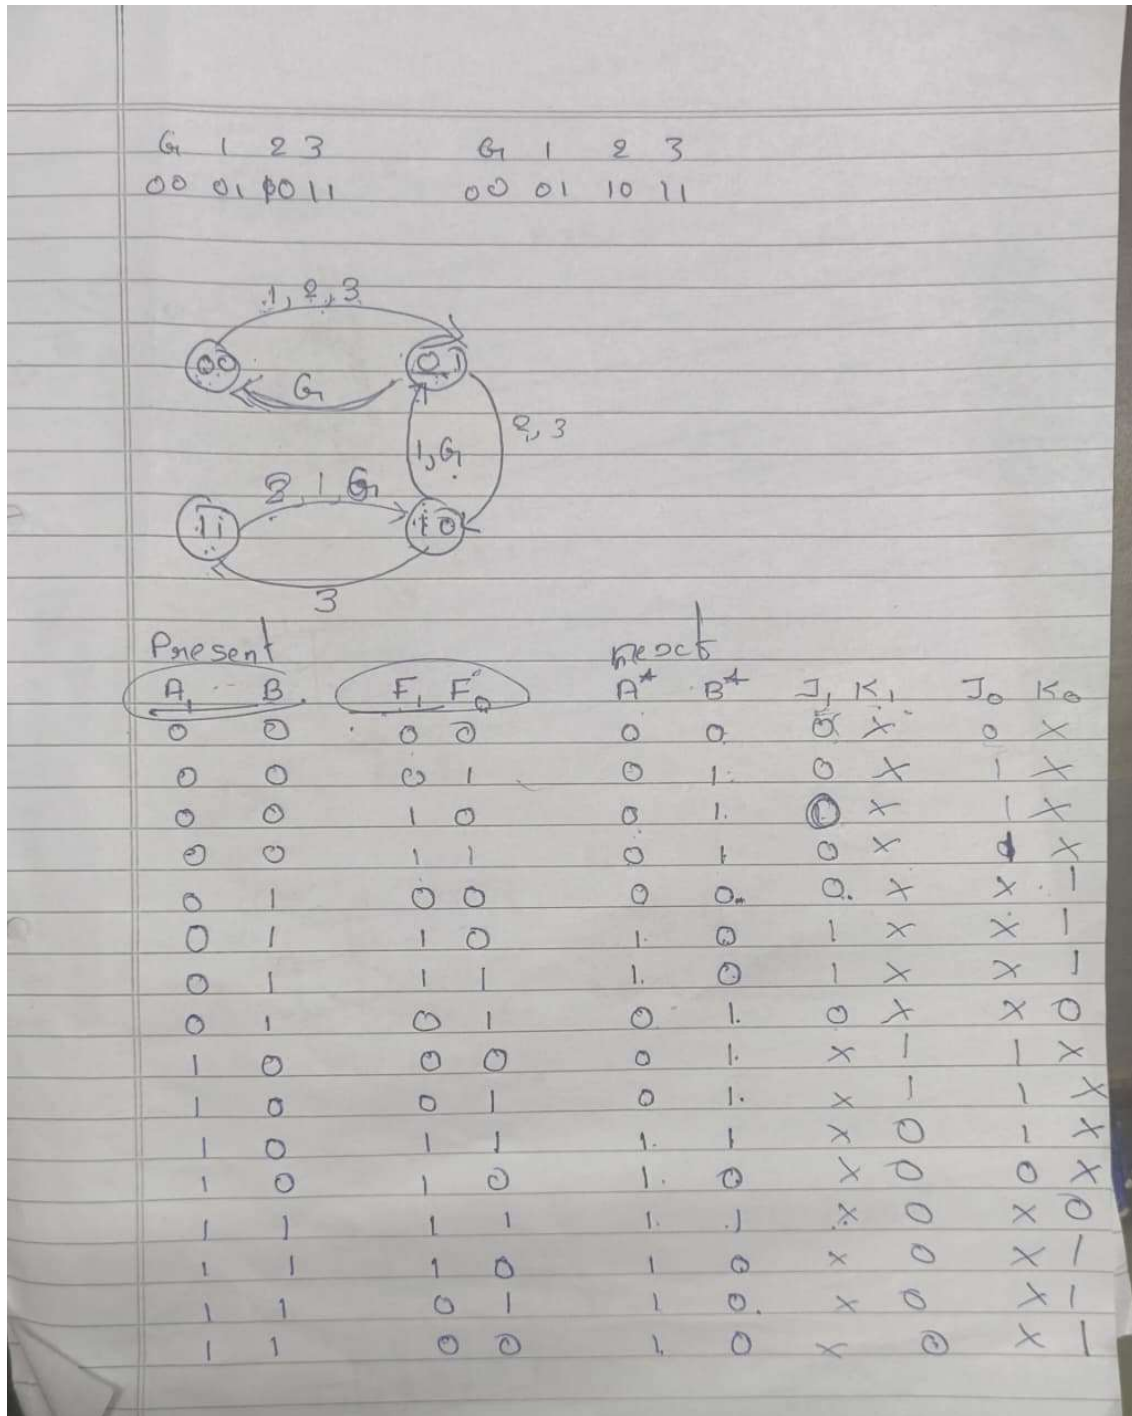 G 1 2 3 G 1 2 3
00 01 10 11 00 01 10 11
1, 2, 3
00 01
G
2, 3
1, G
2, 1, G
11 10
3
Present next
A1 B F1 F0 A* B* J1 K1 J0 K0
0 0 0 0 0 0 0 X 0 X
0 0 0 1 0 1 0 X 1 X
0 0 1 0 0 1 0 X 1 X
0 0 1 1 0 1 0 X 1 X
0 1 0 0 0 0 0 X X 1
0 1 1 0 1 0 1 X X 1
0 1 1 1 1 0 1 X X 1
0 1 0 1 0 1 0 X X 0
1 0 0 0 0 1 X 1 1 X
1 0 0 1 0 1 X 1 1 X
1 0 1 1 1 1 X 0 1 X
1 0 1 0 1 0 X 0 0 X
1 1 1 1 1 1 X 0 X 0
1 1 1 0 1 0 X 0 X 1
1 1 0 1 1 0 X 0 X 1
1 1 0 0 1 0 X 0 X 1